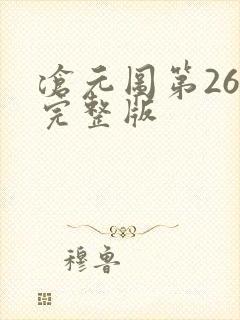 滄元图第26
完整版
穆鲁